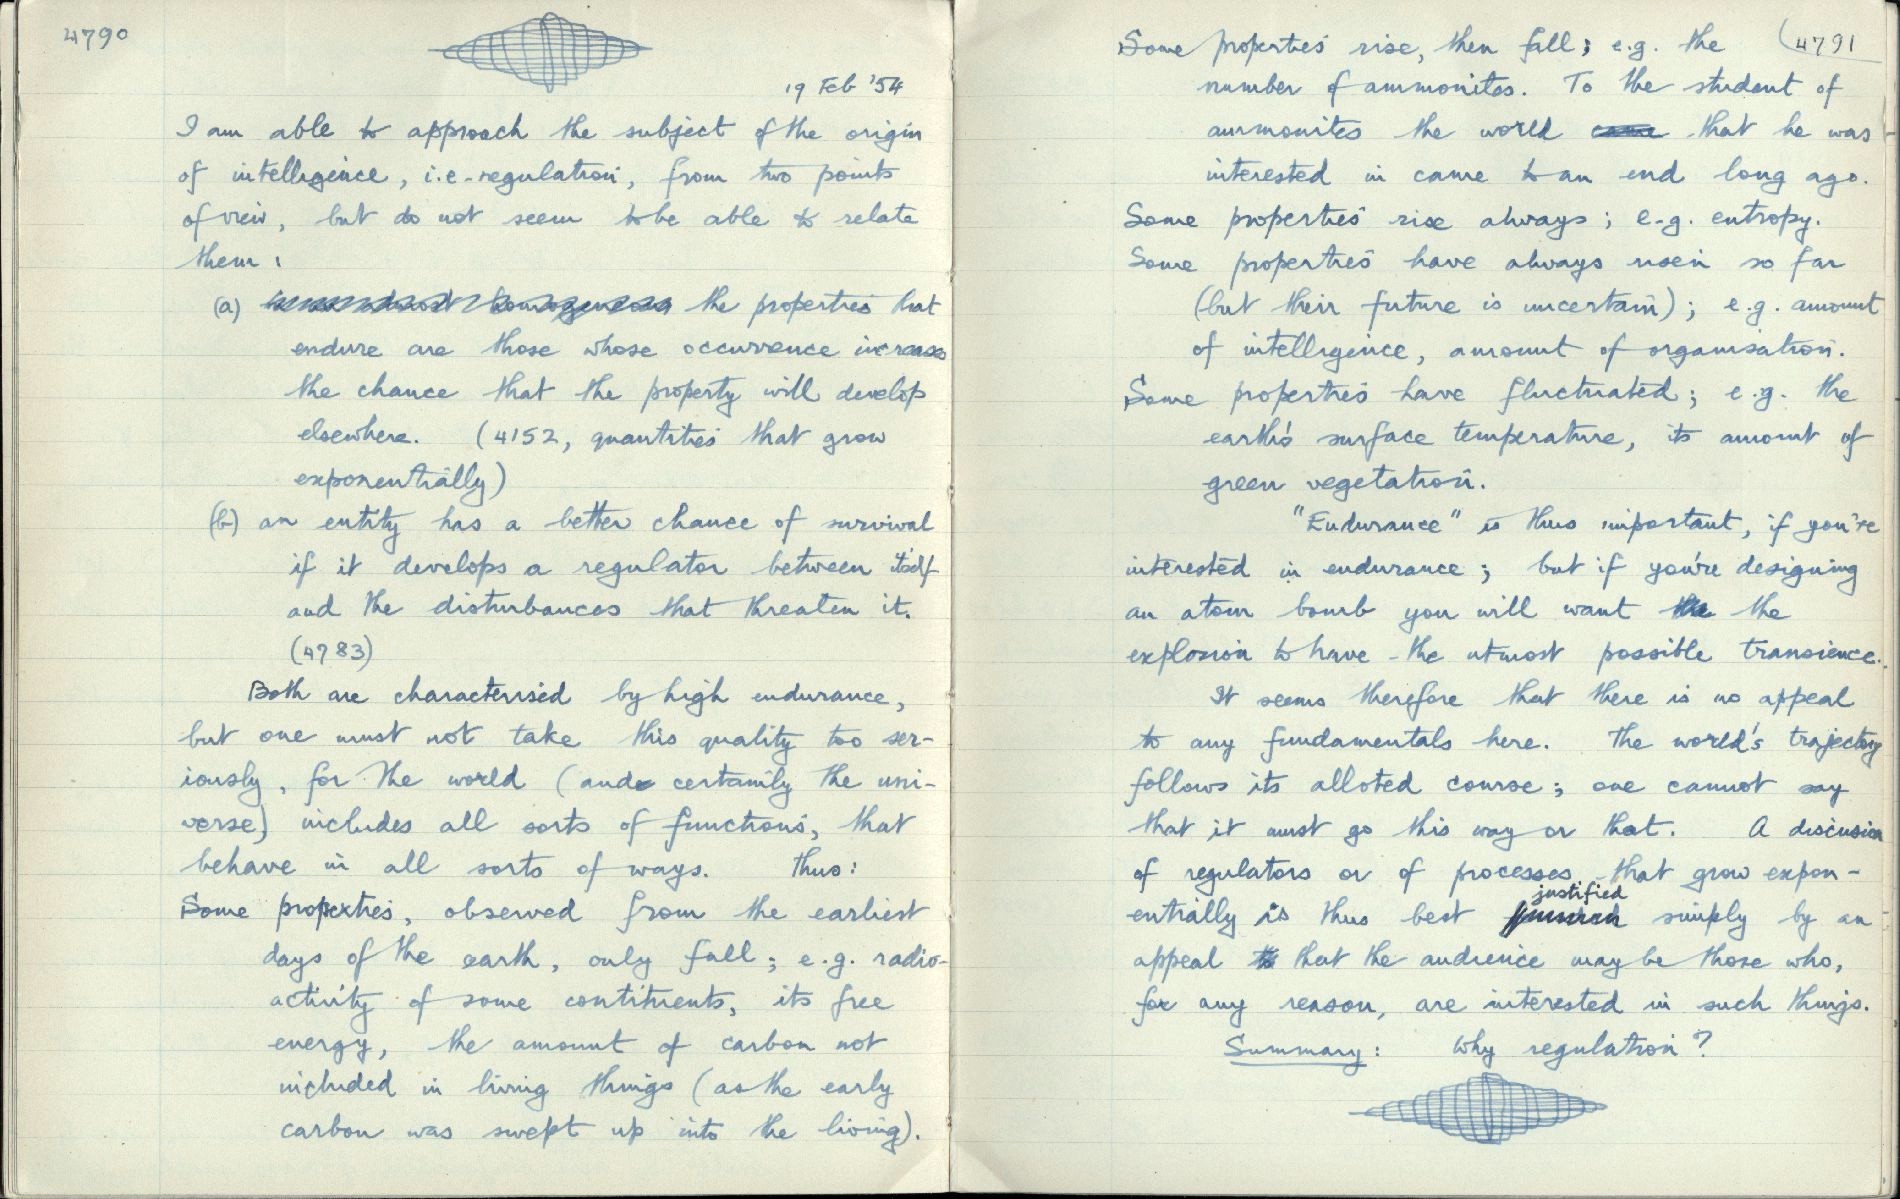 4790
19 Feb '54
I am able to approach the subject of the origin
of intelligence, i.e. regulation, from two points
of view, but do not seem to be able to relate
them:
(a) the properties that
endure are those whose occurrence increases
the chance that the property will develop
elsewhere. (4152, quantities that grow
exponentially)
(b) an entity has a better chance of survival
if it develops a regulator between itself
and the disturbances that threaten it.
(4783)
Both are characterised by high endurance,
but one must not take this quality too ser-
iously, for the world (and certainly the uni-
verse) includes all sorts of functions, that
behave in all sorts of ways. Thus:
Some properties, observed from the earliest
days of the earth, only fall; e.g. radio-
activity of some contituents, its free
energy, the amount of carbon not
included in living things (as the early
carbon was swept up into the living).
4791
Some properties rise, then fall; e.g. the
number of ammonites. To the student of
ammonites the world that he was
interested in came to an end long ago.
Some properties rise always; e.g. entropy.
Some properties have always risen so far
(but their future is uncertain); e.g. amount
of intelligence, amount of organisation.
Some properties have fluctuated; e.g. the
earth's surface temperature, its amount of
green vegetation.
"Endurance" is thus important, if you're
interested in endurance; but if you're designing
an atom bomb you will want the
explosion to have the utmost possible transience.
It seems therefore that there is no appeal
to any fundamentals here. The world's trajectory
follows its alloted course; one cannot say
that it must go this way or that. A discusion
of regulators or of processes that grow expon-
entially is thus best justified simply by an
appeal that the audience may be those who,
for any reason, are interested in such things.
Summary: Why regulation?